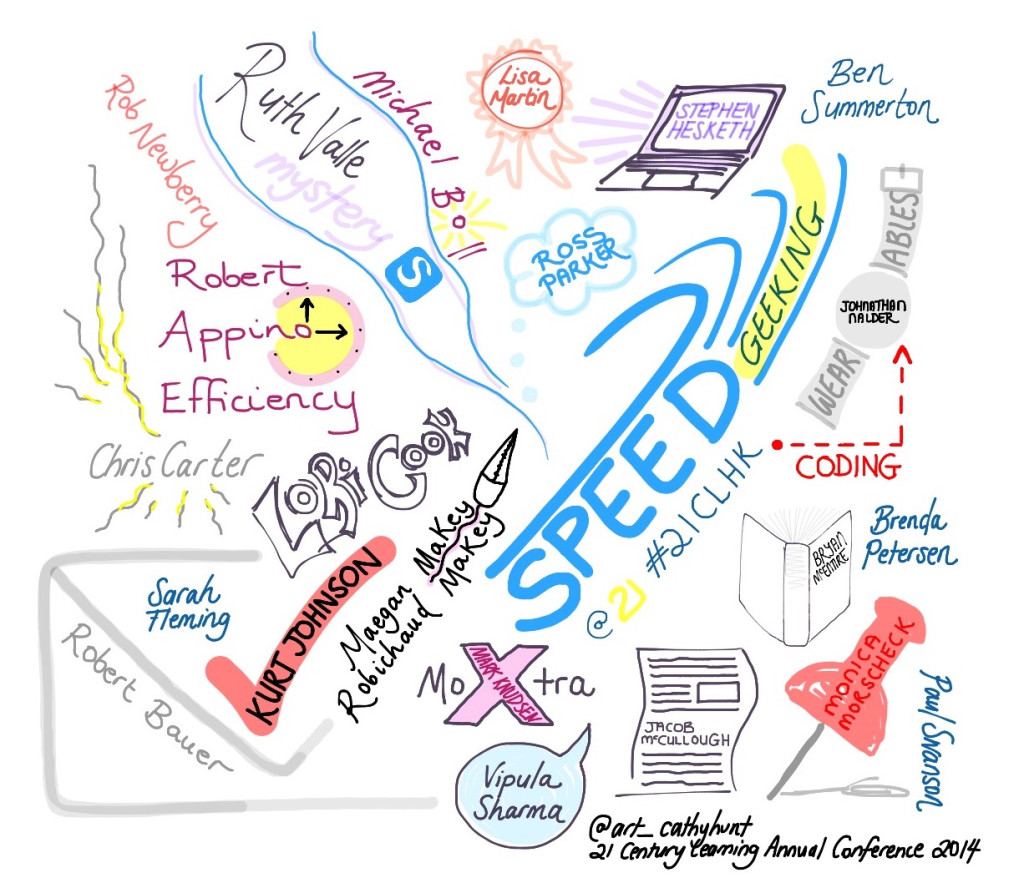 Ruth Valle
mystery
S
Michael Boll
Lisa
Martin
STEPHEN
HESKETH
Ben
Summerton
Rob Newberry
ROSS
PARKER
Robert
Appino
Efficiency
SPEED
GEEKING
WEARABLES
JOHNATHAN
NALDER
CODING
Chris Carter
LORI COOK
MaKey
MaKey
Maegan
Robichaud
#21CLHK
@21
BRYAN
McENTIRE
Brenda
Petersen
Sarah
Fleming
KURT JOHNSON
Robert Bauer
MoXtra
MARK KNUDSEN
JACOB
McCULLOUGH
MONICA
MORSCHECK
Paul Swanson
Vipula
Sharma
@art_cathyhunt
21 Century Learning Annual Conference 2014